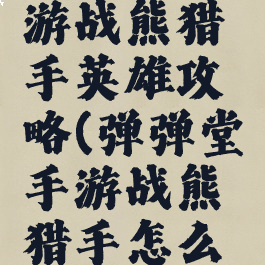 游战熊猎
手英雄攻
略(弹弹堂
手游战熊
猎手怎么